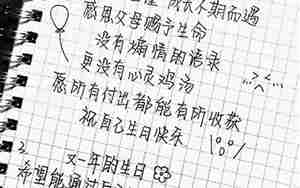 成长不期而遇
感恩父母赐予生命
没有煽情的语录
更没有心灵鸡汤
愿所有付出都能有所收获
祝自己生日快乐
2.
又一年的生日
希望能通过